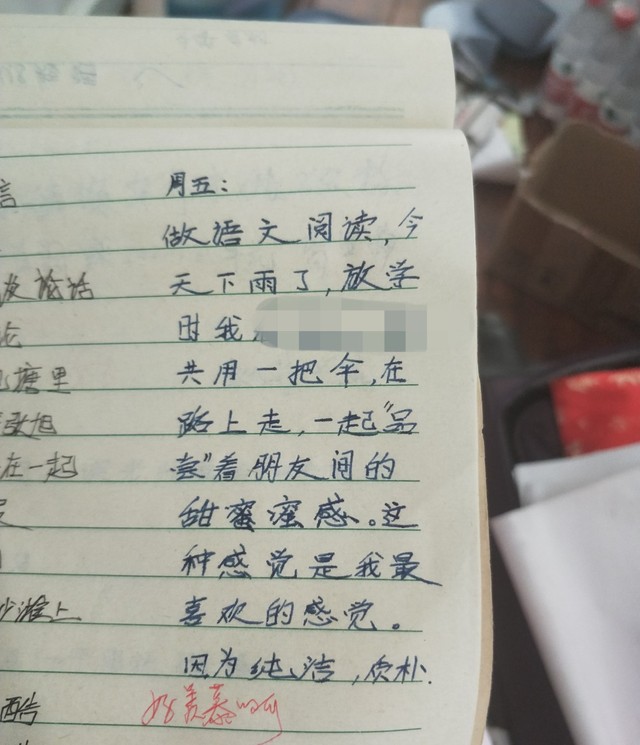 言
月五：
做语文阅读,今
及论话
天下雨了,放学
论
时我,
塘里
共用一把伞,在
敢旭
路上走,一起“品
在一起
尝”着朋友间的
甜蜜蜜感。这
种感觉是我最
沙滩上
喜欢的感觉。
因为纯洁,质朴.
酷
好羡慕啊